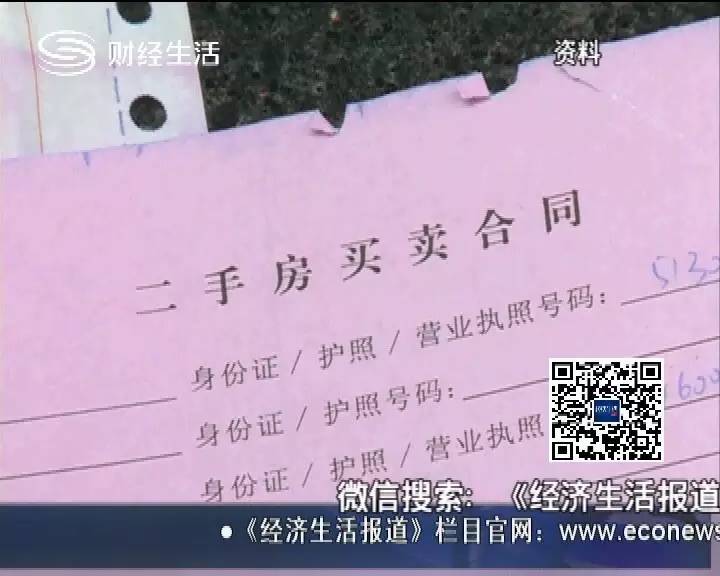 财经生活
资料
二手房买卖合同
身份证/护照/营业执照号码：5130
身份证/护照号码：
600
身份证/护照/营业执照
微信搜索：《经济生活报道
●《经济生活报道》栏目官网：www.econews